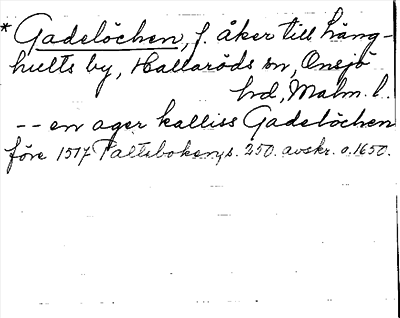 * Gadelöchen, f. åker till Häng-
hults by, Hallaröds sn, Onsjö
hd, Malm. l.
-- en ager kalliss Gadelöchen
före 1517 Paltebokeny s. 250. avskr. o. 1650.